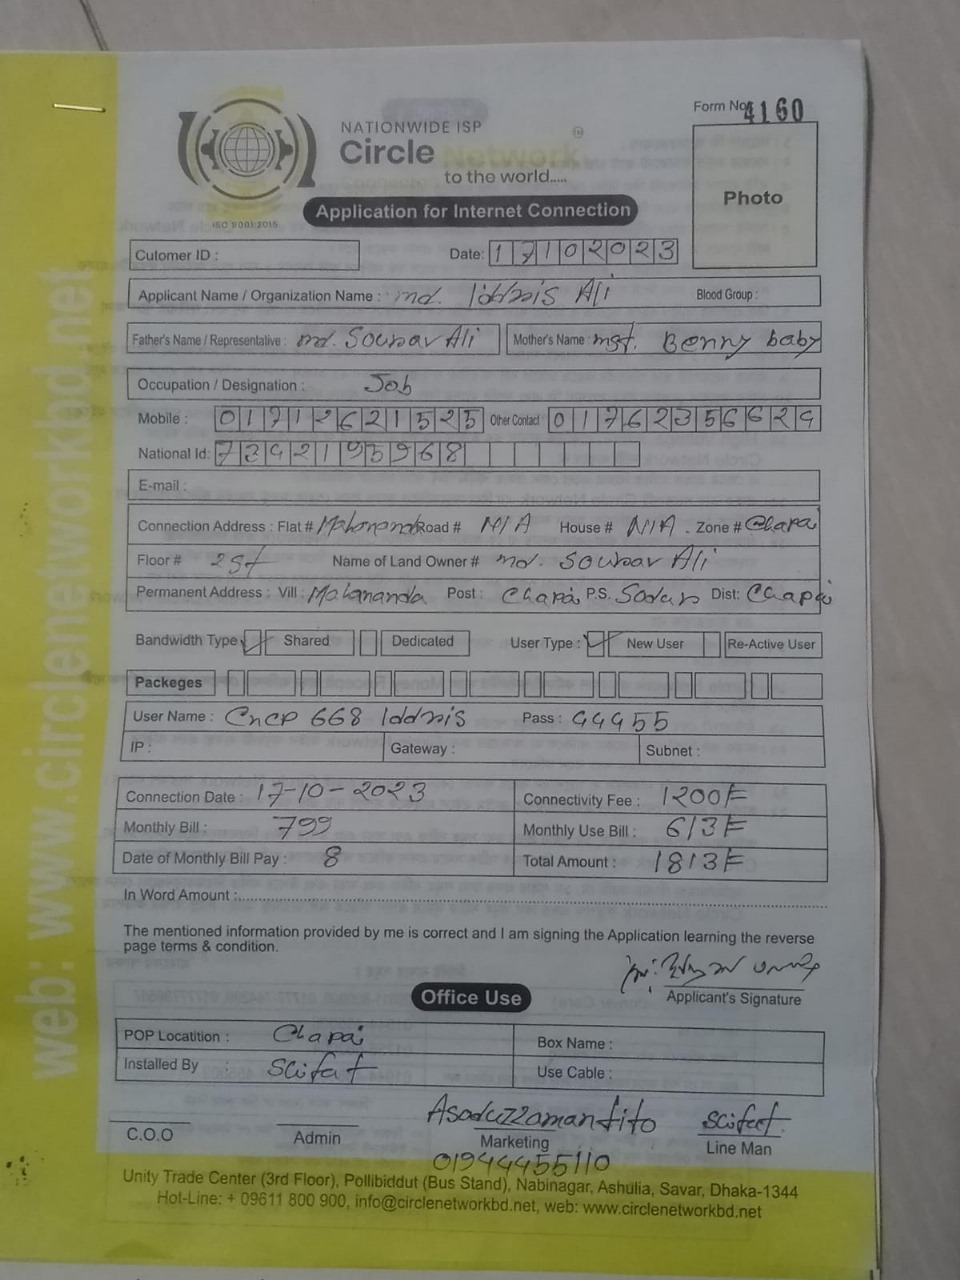 Form No 4160
NATIONWIDE ISP
Circle Network
to the world.....
ISO 9001:2015
Application for Internet Connection
Photo
Cutomer ID :
Date: 17102023
Applicant Name / Organization Name : md. Iddris Ali Blood Group :
Father's Name / Representative : md. Sounar Ali Mother's Name : mst. Benny baby
Occupation / Designation : Job
Mobile : 01712621525 Other Contact : 01762356624
National Id: 7342195968
E-mail :
Connection Address : Flat # Mahananda Road # N/A House # N/A Zone # Chapai
Floor # 2st Name of Land Owner # md. Sounar Ali
Permanent Address : Vill : Mahananda Post : Chapai P.S. Sadar Dist: Chapai
Bandwidth Type Shared Dedicated User Type : New User Re-Active User
Packeges
User Name : Cncp 668 Iddris Pass : 44455
IP : Gateway : Subnet :
Connection Date : 17-10-2023 Connectivity Fee : 1200/=
Monthly Bill : 799 Monthly Use Bill : 613/=
Date of Monthly Bill Pay : 8 Total Amount : 1813/=
In Word Amount :
The mentioned information provided by me is correct and I am signing the Application learning the reverse
page terms & condition.
Applicant's Signature
Office Use
POP Locatition : Chapai Box Name :
Installed By Scifat Use Cable :
Asaduzzaman tito Scifat
C.O.O Admin Marketing Line Man
01944455110
Unity Trade Center (3rd Floor), Pollibiddut (Bus Stand), Nabinagar, Ashulia, Savar, Dhaka-1344
Hot-Line: + 09611 800 900, info@circlenetworkbd.net, web: www.circlenetworkbd.net
web: www.circlenetworkbd.net